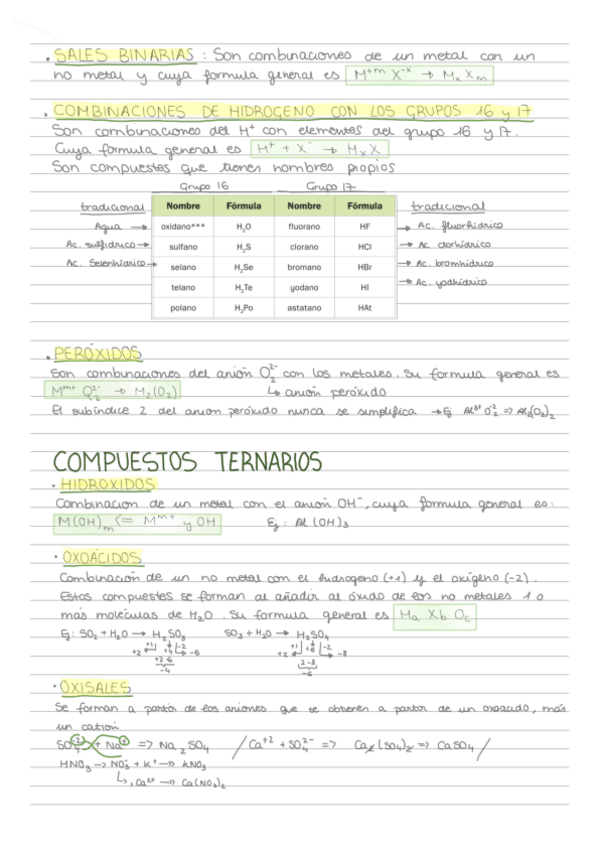 . SALES BINARIAS : Son combinaciones de un metal con un
no metal y cuya formula general es M⁺ᵐ X⁻ˣ → Mₓ Xₘ
. COMBINACIONES DE HIDROGENO CON LOS GRUPOS 16 y 17
Son combinaciones del H⁺ con elementos del grupo 16 y 17.
Cuya formula general es H⁺ + X⁻ → HₓX
Son compuestos que tienen nombres propios
Grupo 16 Grupo 17
tradicional Nombre Fórmula Nombre Fórmula tradicional
Agua → oxidano*** H₂O fluorano HF → Ac. fluorhídrico
Ac. sulfidrico → sulfano H₂S clorano HCl → Ac clorhídrico
Ac. Selenhídrico → selano H₂Se bromano HBr → Ac. bromhidrico
telano H₂Te yodano HI → Ac. yodhídrico
polano H₂Po astatano HAt
. PERÓXIDOS
Son combinaciones del anión O₂²⁻ con los metales. Su formula general es
Mᵐ⁺ O₂²⁻ → M₂(O₂) ↳ anión peróxido
El subíndice 2 del anion peróxido nunca se simplifica → Ej Al³⁺ O₂²⁻ => Al₂(O₂)₂
COMPUESTOS TERNARIOS
. HIDROXIDOS
Combinacion de un metal con el anión OH⁻, cuya formula general es:
M(OH)ₘ <= Mᵐ⁺ y OH Ej: Al (OH)₃
. OXOÁCIDOS
Combinación de un no metal con el hidrogeno (+1) y el oxígeno (-2).
Estos compuestos se forman al añadir al óxido de los no metales 1 o
más moléculas de H₂O. Su formula general es Ha Xb Oc
Ej: SO₂ + H₂O → H₂SO₃ SO₃ + H₂O → H₂SO₄
+2 +1 +4 -2 -6 +2 +1 +6 -2 -8
+2-6 2-8
-4 -6
. OXISALES
Se forman a partir de los aniones que se obtienen a partir de un oxoacido, más
un cation
SO₄²⁻ + Na⁺ => Na₂SO₄ / Ca⁺² + SO₄²⁻ => Ca₂(SO₄)₂ => CaSO₄ /
HNO₃ → NO₃⁻ + K⁺ → KNO₃
↳ Ca²⁺ → Ca(NO₃)₂